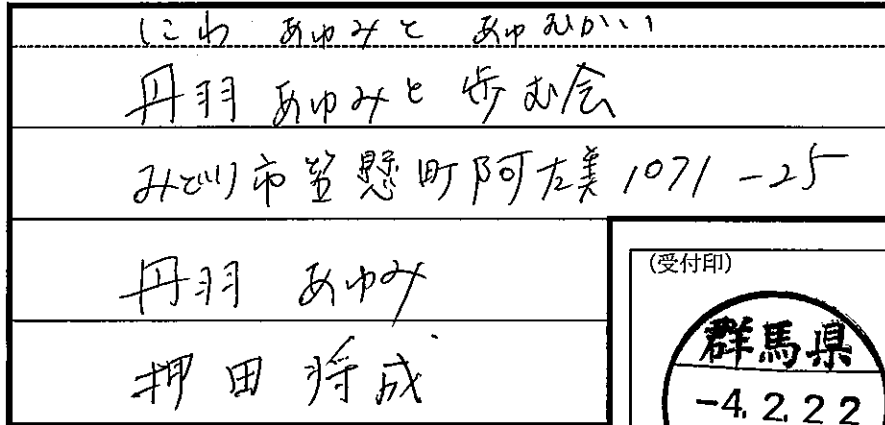 にわ あゆみと あゆむかい
丹羽 あゆみと 歩む会
みどり市笠懸町阿左美1071-25
丹羽 あゆみ
押田将成
(受付印)
群馬県
-4.2.22